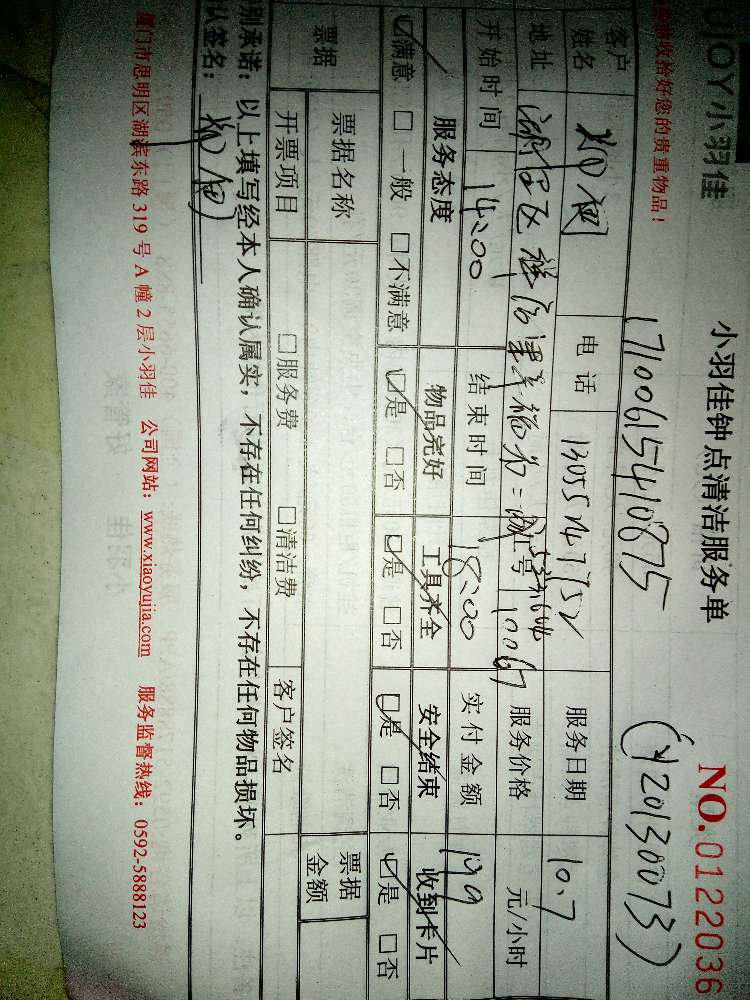 UJOY小羽佳 小羽佳钟点清洁服务单 NO.0122036
收拾好您的贵重物品! 17100615410875 (X20130073)
客户姓名 电话 服务日期 10.7
地址 证号 10067 服务价格 元/小时
开始时间 14:00 结束时间 18:00 实付金额 199
服务态度 物品完好 工具齐全 安全结束 收到卡片
☑满意 □一般 □不满意 ☑是 □否 ☑是 □否 ☑是 □否 ☑是 □否
票据 票据名称 票据金额
开票项目 □服务费 □清洁费 客户签名
别承诺:以上填写经本人确认属实,不存在任何纠纷,不存在任何物品损坏。
认签名:
厦门市思明区湖滨东路 319 号 A 幢 2 层小羽佳 公司网站:www.xiaoyujia.com 服务监督热线:0592-5888123